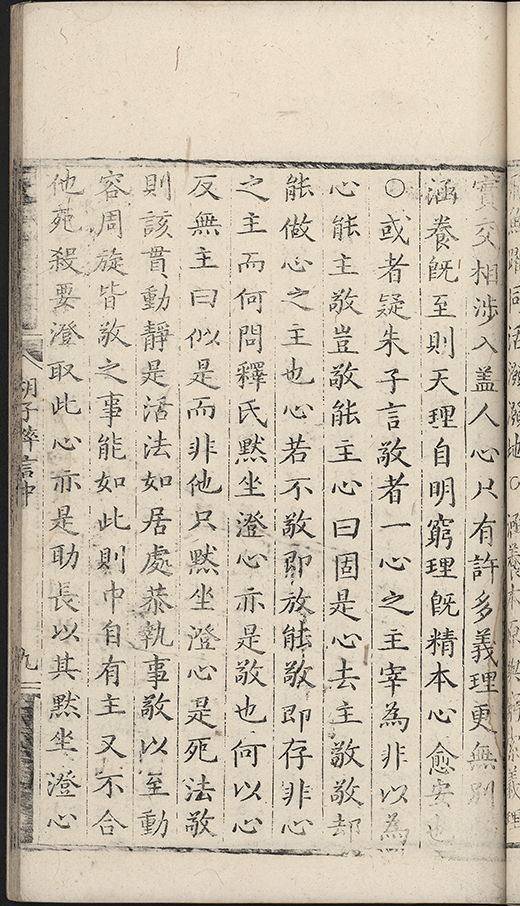 實交相涉入盖人心只有許多義理更無別
涵養旣至則天理自明窮理旣精本心愈安也
○或者疑朱子言敬者一心之主宰為非以為
心能主敬豈敬能主心曰固是心去主敬敬却
能做心之主也心若不敬即放能敬即存非心
之主而何問釋氏黙坐澄心亦是敬也何以心
反無主曰似是而非他只黙坐澄心是死法敬
則該貫動靜是活法如居處恭執事敬以至動
容周旋皆敬之事能如此則中自有主又不合
他苑殺要澄取此心亦是助長以其黙坐澄心
胡子粹言中
九